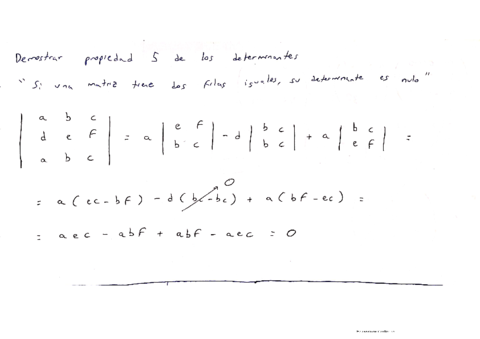 Demostrar propiedad 5 de los determinantes
"Si una matriz tiene dos filas iguales, su determinante es nulo"
| a b c |
| d e f | = a | e f | - d | b c | + a | b c | =
| a b c | | b c | | b c | | e f |
= a(ec - bf) - d(bc - bc) 0 + a(bf - ec) =
= aec - abf + abf - aec = 0